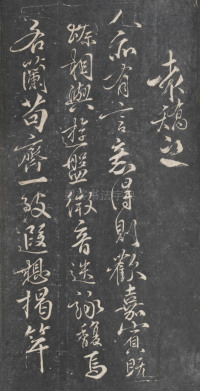 袁嶠之
人亦有言意得則歡嘉賓既
臻相與遊盤微音迭詠馥焉
若蘭苟齊一致遐想揭竿